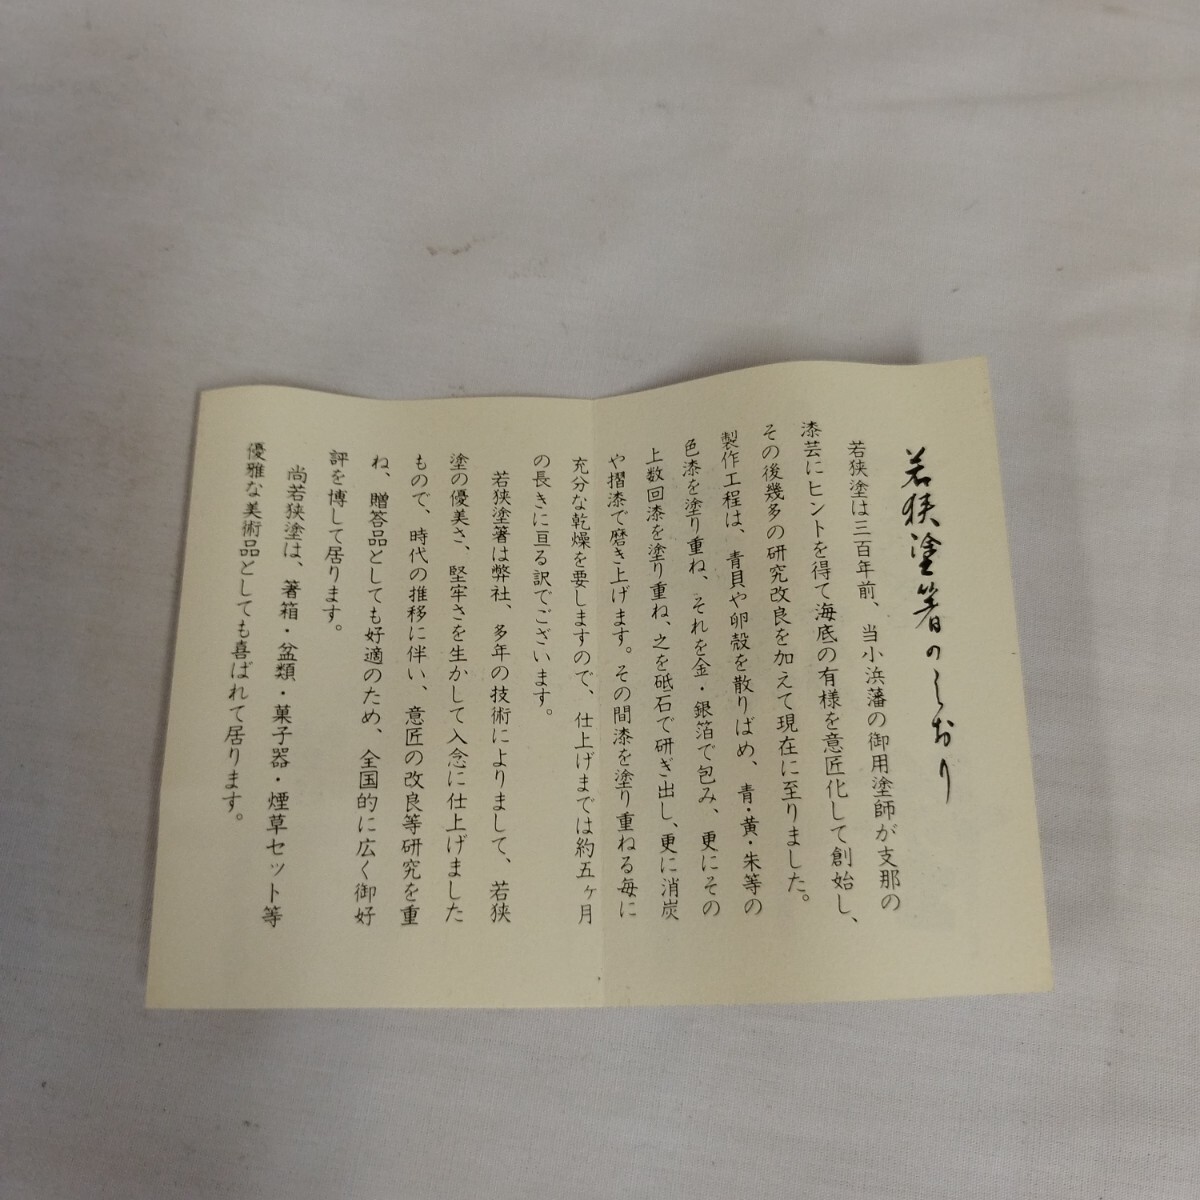 若狭塗箸のしおり
若狭塗は三百年前、当小浜藩の御用塗師が支那の
漆芸にヒントを得て海底の有様を意匠化して創始し、
その後幾多の研究改良を加えて現在に至りました。
製作工程は、青貝や卵殻を散りばめ、青・黄・朱等の
色漆を塗り重ね、それを金・銀箔で包み、更にその
上数回漆を塗り重ね、之を砥石で研ぎ出し、更に消炭
や摺漆で磨き上げます。その間漆を塗り重ねる毎に
充分な乾燥を要しますので、仕上げまでは約五ヶ月
の長きに亘る訳でございます。
若狭塗箸は弊社、多年の技術によりまして、若狭
塗の優美さ、堅牢さを生かして入念に仕上げました
もので、時代の推移に伴い、意匠の改良等研究を重
ね、贈答品としても好適のため、全国的に広く御好
評を博して居ります。
尚若狭塗は、箸箱・盆類・菓子器・煙草セット等
優雅な美術品としても喜ばれて居ります。